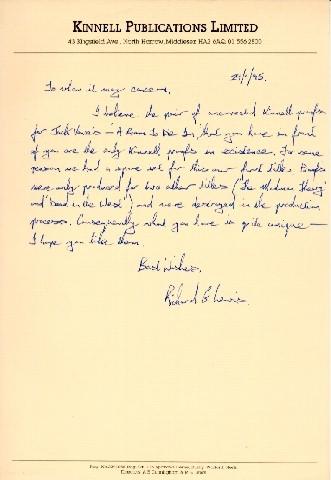 KINNELL PUBLICATIONS LIMITED
43 Kingsfield Ave., North Harrow, Middlesex HA2 6AQ. 01 556 2800
To whom it may concern,
I believe the pair of uncorrected Kinnell proofs
for Jack Vance's — A Room To Die In, that you have in front
of you are the only Kinnell proofs in existence. For some
reason we had a spare set for this our first title. Proofs
were only produced for two other titles ("The Medusa Frequency"
and "Dead in the West") and were destroyed in the production
processes. Consequently what you have is quite unique —
I hope you like them.
Best Wishes,
Richard G. Lewis.